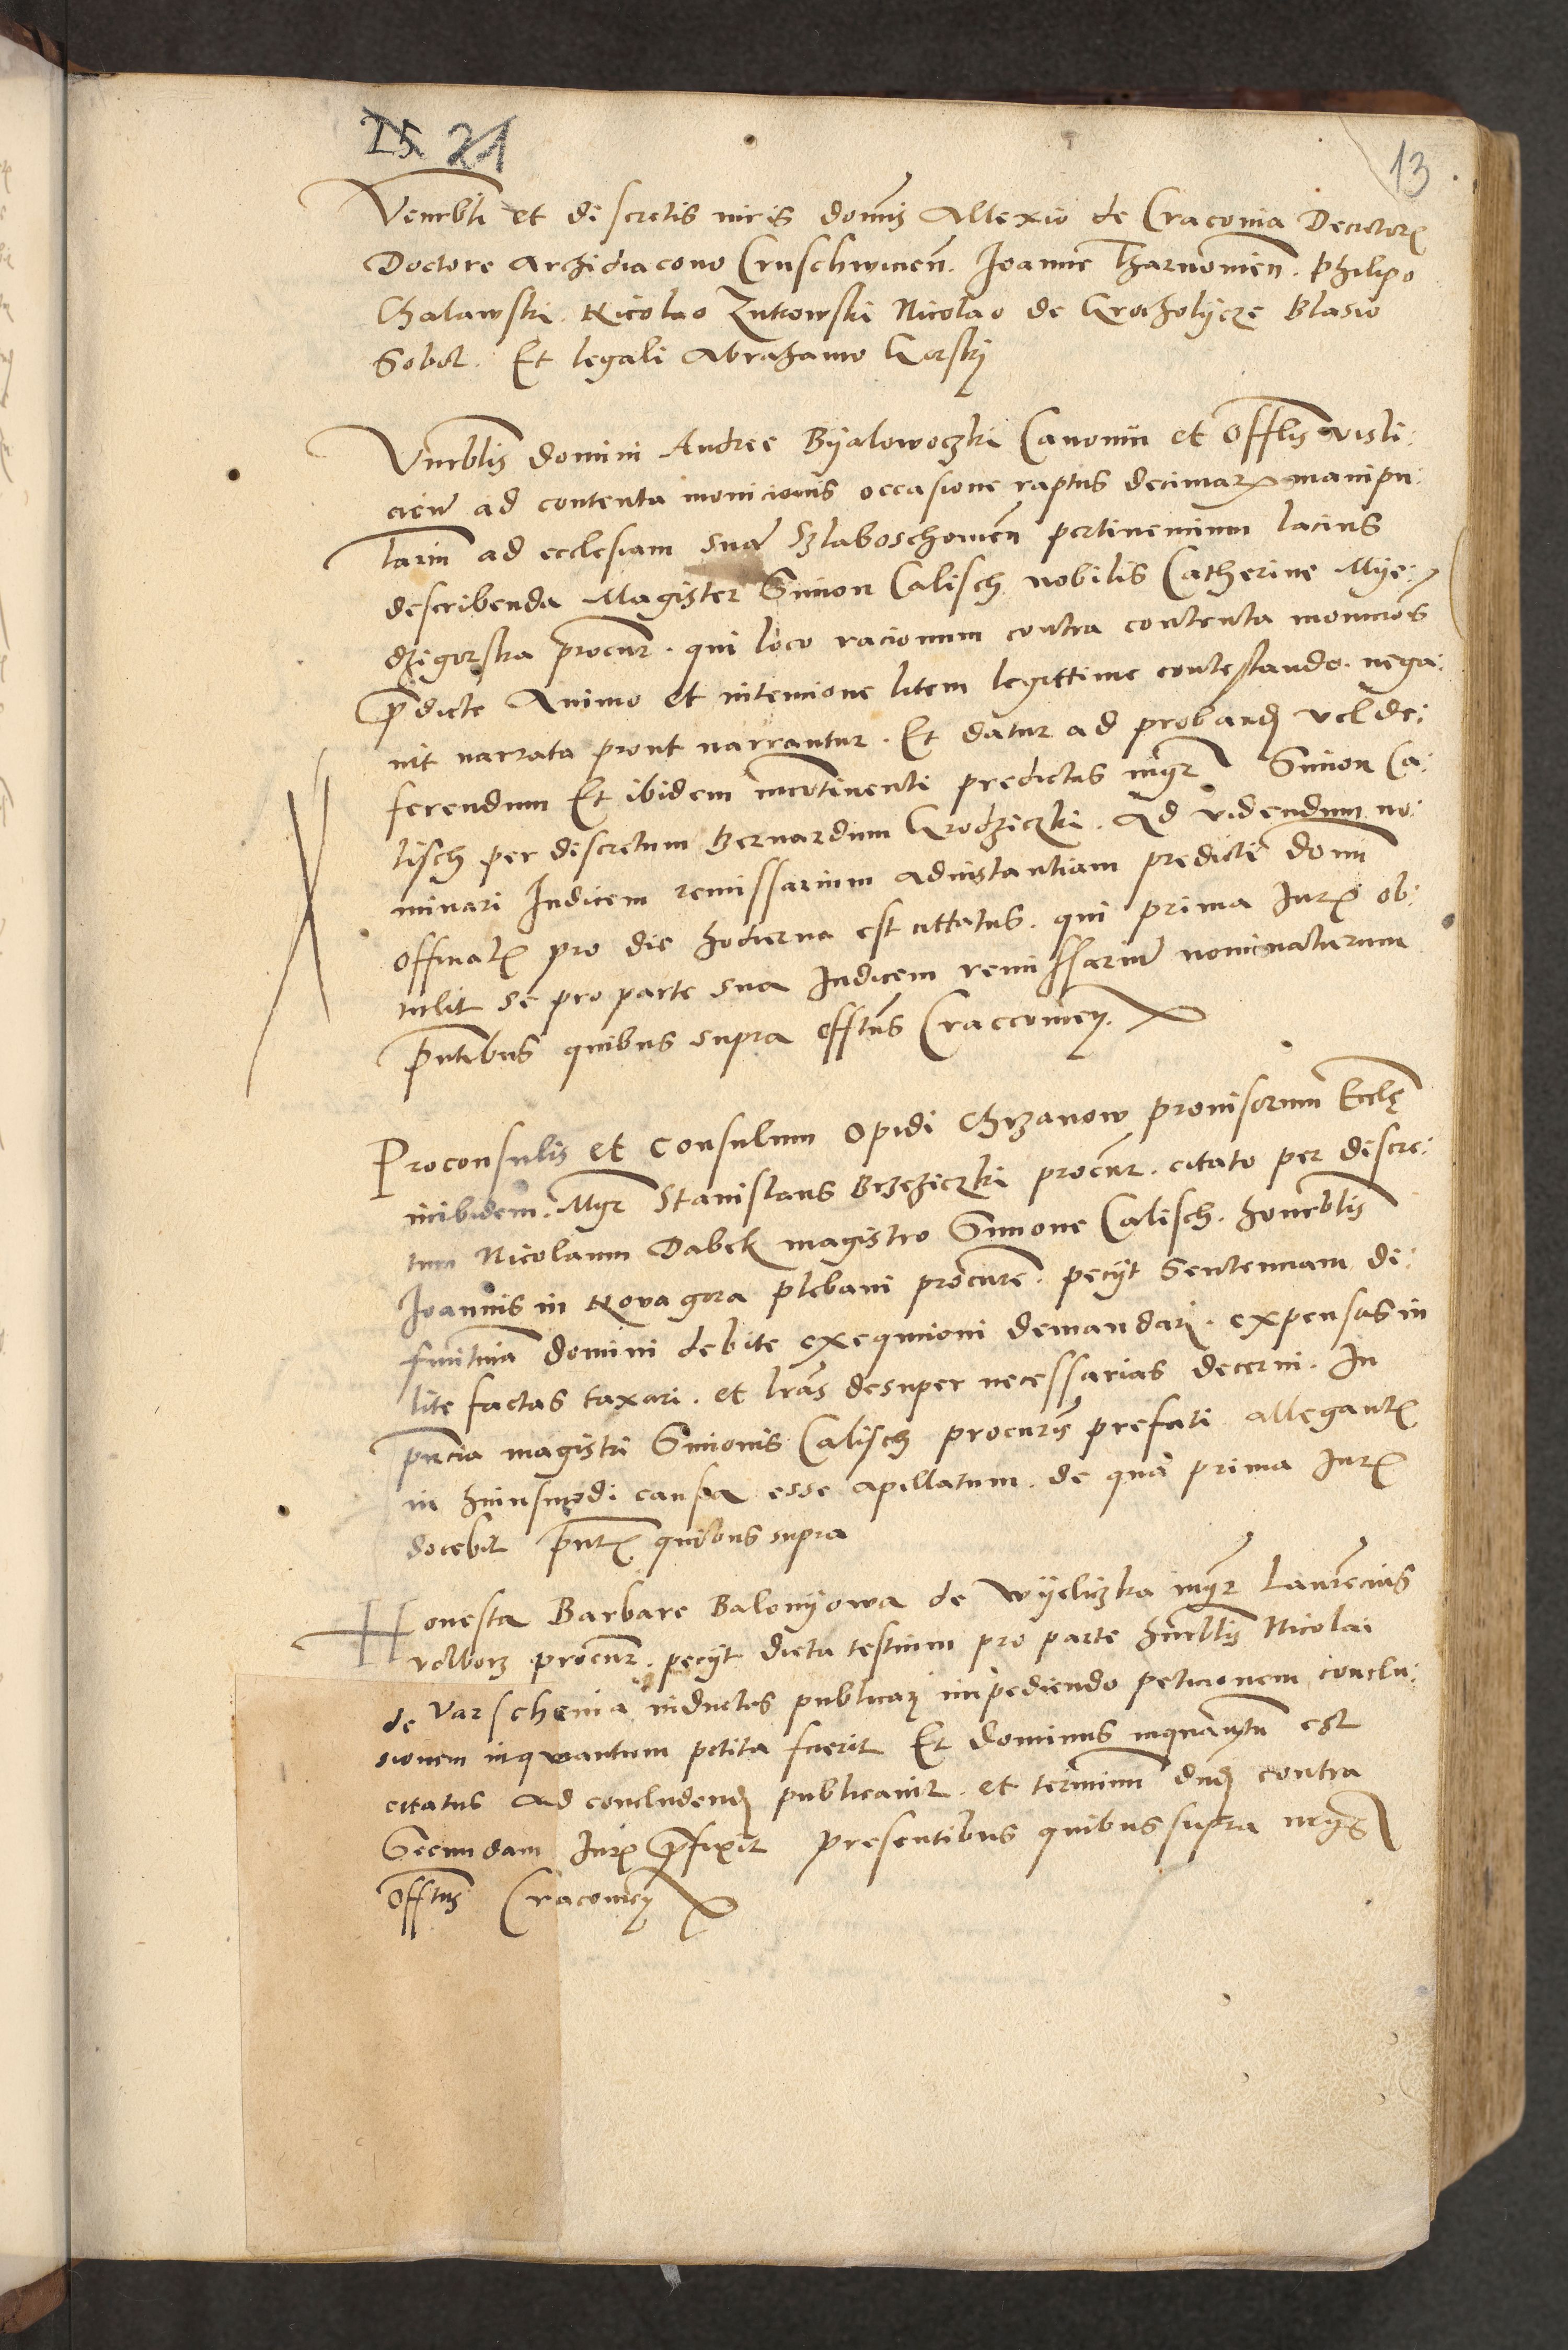 25 21
13
Venerbli et discretis viris dominis Allexio de Cracovia Decretorum
Doctore Archidiacono Cruschwicien. Joanne Tharnowien. Philipo
Chalawski Nicolao Zukowski Nicolao de Grocholycze Blasio
Sobol. Et legali Abrahamo Gorski
Vnerblis domini Andree Byalowoczki Canonici et Offlis visli:
cien ad contenta monicionis occasione raptus decimarum manipu:
larium ad ecclesiam suam Szlaboschowien pertinencium lacius
describenda Magister Simon Calisch nobilis Catherine Mye:
dzigorska procur. qui loco racionum contra contenta monicionis
predicte Animo et intencione litem legittime contestando. nega:
vit narrata prout narrantur. Et datur ad proband vel de:
ferendum Et ibidem incontinenti predictus mgr Simon Ca:
lisch per discretum Bernardum Grodziczki. Ad videndum no:
minari Judicem remissarium ad instantiam predicti domini
officialis pro die hodierna est citatus. qui prima Juris ob:
tulit se pro parte sua Judicem remissarium nominaturum
pntibus quibus supra officialatus Craccovien.
Proconsulis et Consulum Opidi Chrzanow provisorum Eccle
inibidem. Mgr Stanislaus Brzeziczki procur. citato per discre:
tum Nicolaum Dabek magistro Simone Calisch. honorablis
Joannis in Nova gora plebani procure. peciit Sentenciam di:
finitivam domini debite exequcioni demandari. expensas in
lite factas taxari. et lras desuper necessarias decerni. In
pncia magistri Simonis Calisch procuris prefati allegantis
in huiusmodi causa esse apellatum. de qua prima Juris
docebit pntibus quibus supra
Honesta Barbare Balonyowa de Wyeliczka mgr Laurencius
volborz procur. peciit dicta testium pro parte honorablis Nicolai
de Varschevia inductos publicari impediendo peticionem conclu:
sionem inquantum petita fuerit Et dominus inquantum est
citatus ad concludend publicavit. et terminum dnd contra
Secundam Juris prefixit presentibus quibus supra
Officialatus Cracovien